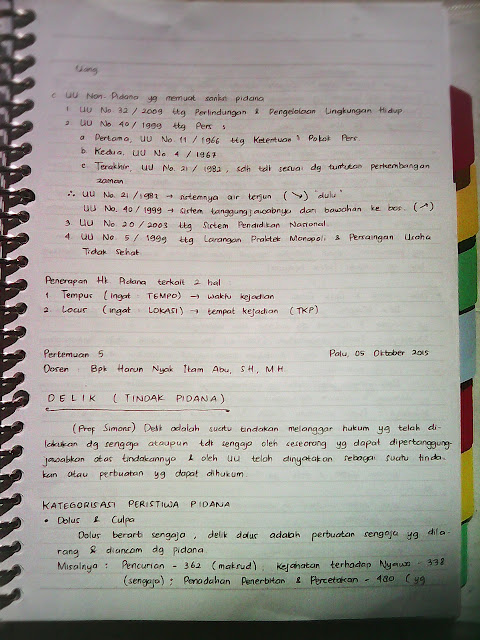 Uang
c. UU Non-Pidana yg memuat sanksi pidana
1. UU No. 32 / 2009 ttg Perlindungan & Pengelolaan Lingkungan Hidup
2. UU No. 40 / 1999 ttg Pers :
a. Pertama, UU No. 11 / 1966 ttg Ketentuan² Pokok Pers.
b. Kedua, UU No. 4 / 1967
c. Terakhir, UU No. 21 / 1982, sdh tdt sesuai dg tuntutan perkembangan
zaman.
∴ UU No. 21 / 1982 → sistemnya air terjun (↘) "dulu"
UU No. 40 / 1999 → sistem tanggungjawabnya dari bawahan ke bos. (↗)
3. UU No 20 / 2003 ttg Sistem Pendidikan Nasional.
4. UU No. 5 / 1999 ttg Larangan Praktek Monopoli & Persaingan Usaha
Tidak Sehat.
Penerapan Hk. Pidana terkait 2 hal
1. Tempus (ingat : TEMPO) → waktu kejadian
2. Locus (ingat : LOKASI) → tempat kejadian (TKP)
Pertemuan 5 Palu, 05 Oktober 2015
Dosen : Bpk Harun Nyak Itam Abu, S.H., M.H.
DELIK (TINDAK PIDANA)
(Prof Simons) Delik adalah suatu tindakan melanggar hukum yg telah di-
lakukan dg sengaja ataupun tdt sengaja oleh seseorang yg dapat dipertanggung-
jawabkan atas tindakannya & oleh UU telah dinyatakan sebagai suatu tinda-
kan atau perbuatan yg dapat dihukum.
KATEGORISASI PERISTIWA PIDANA
• Dolus & Culpa
Dolus berarti sengaja, delik dolus adalah perbuatan sengaja yg dila-
rang & diancam dg pidana.
Misalnya : Pencurian - 362 (maksud); Kejahatan terhadap Nyawa - 338
(sengaja); Penadahan Penerbitan & Percetakan - 480 (yg